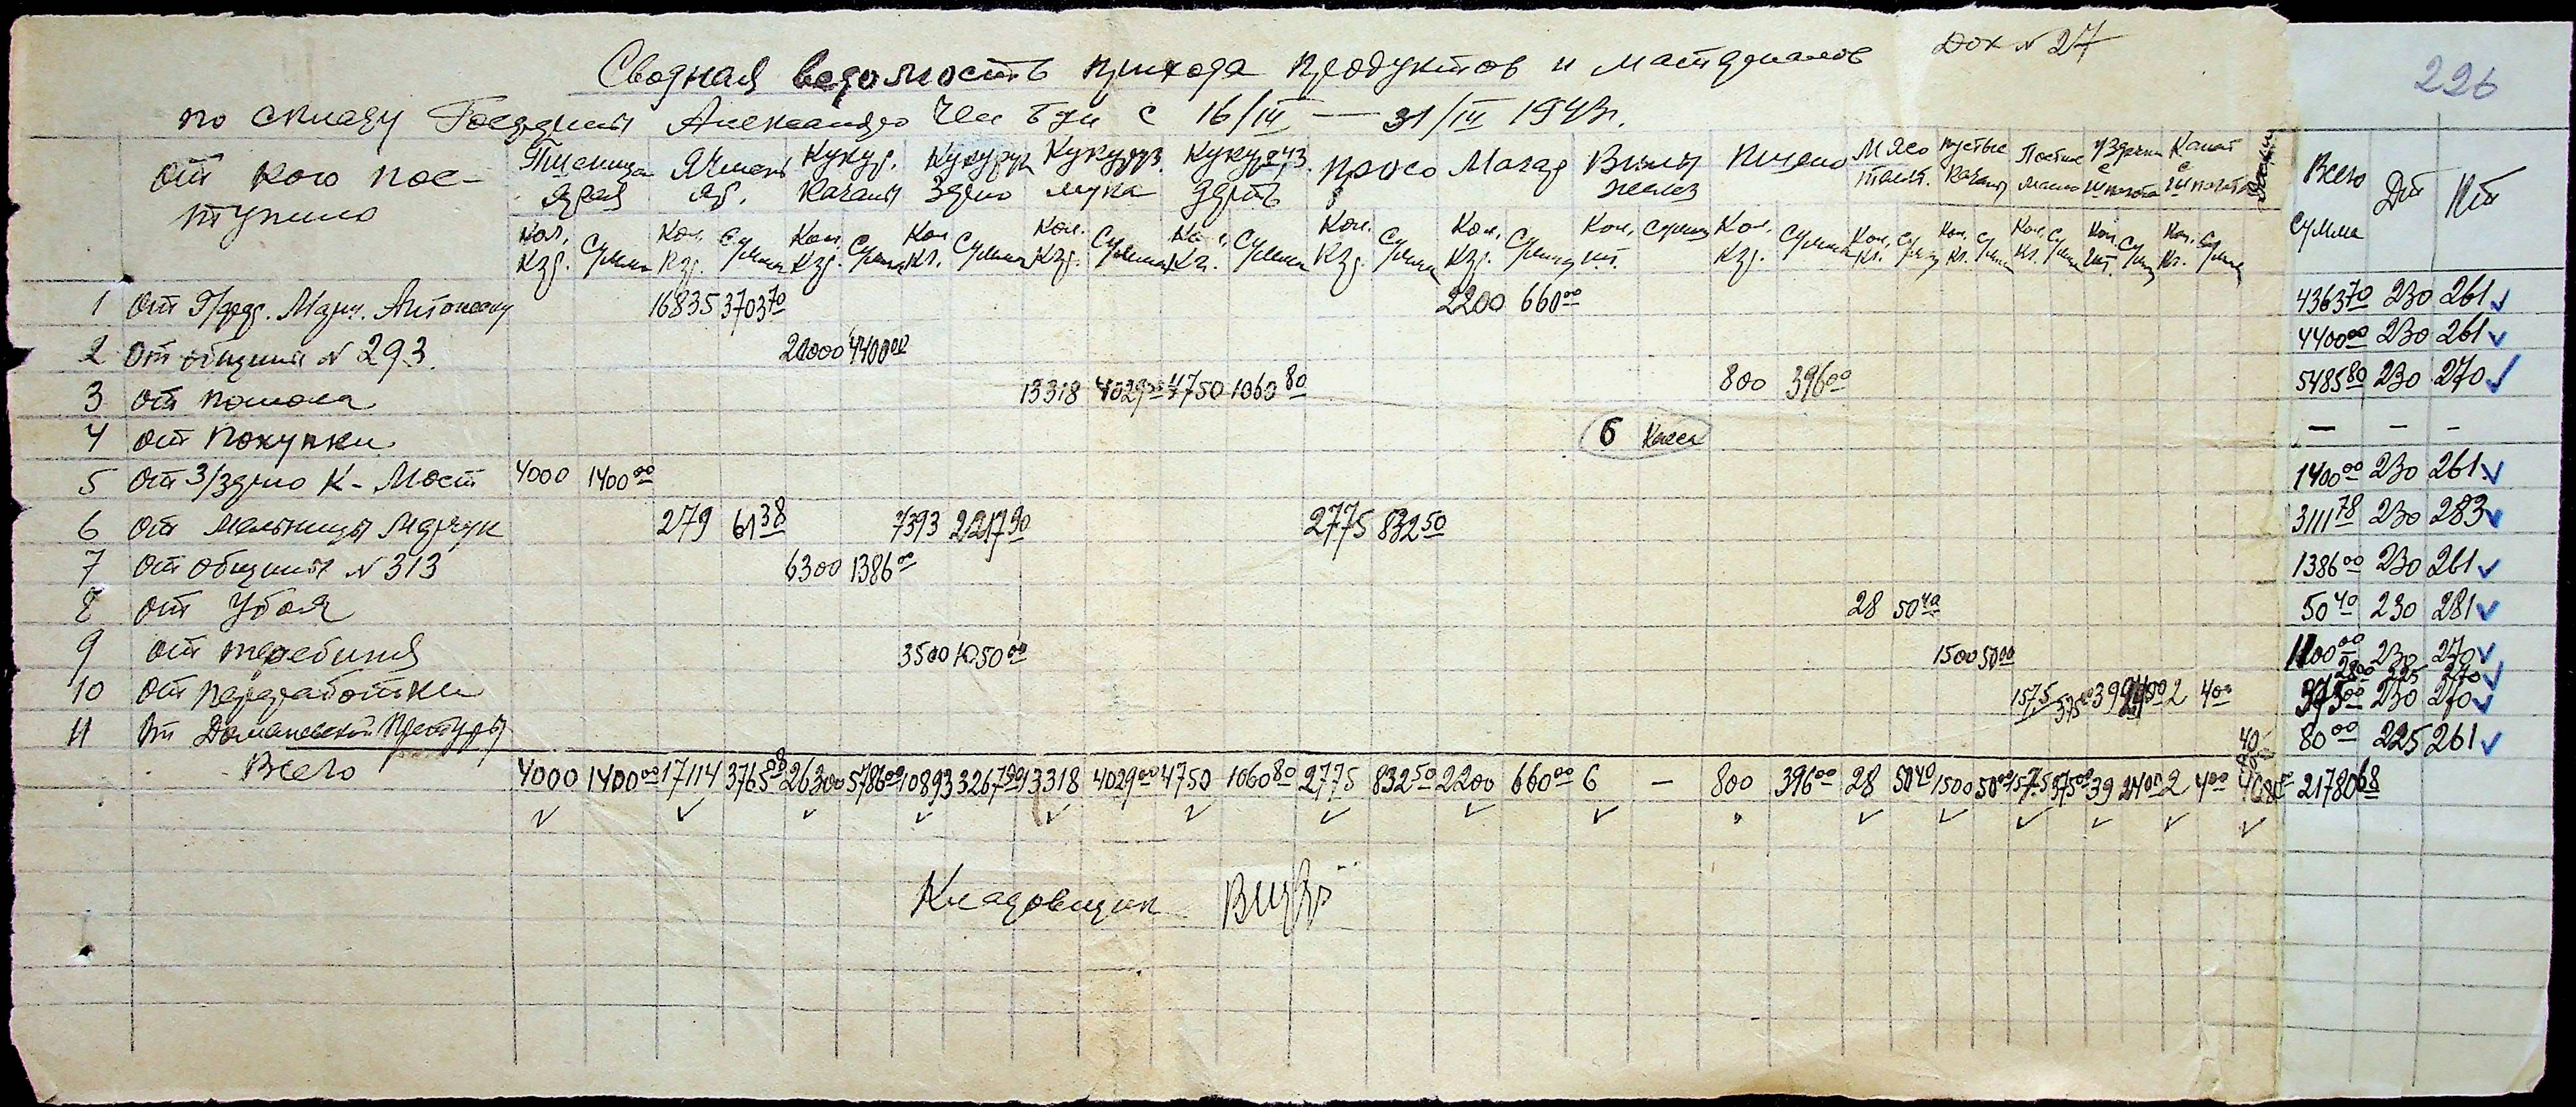 Док № 27
226
Сводная ведомость прихода продуктов и материалов
по складу с 16/III — 31/III 1943г.
От кого поступило Пшеница яров Ячмень яр. Кукур. качаны Кукуруз зерно Кукуруз. мука Кукуруз. дерть просо Магар Вилы желез пшено Мясо пустые качаны Постное масло Уздечки с шпагата Канат с шпагата Всего сумма Дт Кт
Кол. кгр. Сумма Кол. кгр. Сумма Кол. кгр. Сумма Кол. кг. Сумма Кол. кгр. Сумма Кол. кг. Сумма Кол. кгр. Сумма Кол. кгр. Сумма Кол. шт. Сумма Кол. кгр. Сумма Кол. кг. Сумма Кол. кг. Сумма Кол. кг. Сумма Кол. шт. Сумма Кол. кг. Сумма
1 От Антоновку 16835 3703 70 2200 660 00 4363 70 230 261 ✓
2 От общины № 293. 20000 4400 00 4400 00 230 261 ✓
3 От помола 13318 4029 00 4750 1060 80 800 396 00 5485 80 230 270 ✓
4 От покупки 6 Касса — — —
5 От З/зерно К-Мост 4000 1400 00 1400 00 230 261 ✓
6 От мельницы Марчук 279 61 38 7393 2217 90 2775 832 50 3111 78 230 283 ✓
7 От общины № 313 6300 1386 00 1386 00 230 261 ✓
8 От убоя 28 50 40 50 40 230 281 ✓
9 От теребиния 3500 1050 00 1500 50 00 1100 00 230 270 ✓
28 00 225 270 ✓
10 От переработки 157,5 375 00 39 24 00 2 4 00 375 00 230 270 ✓
11 От Доманевской Претуры 40 80 00 225 261 ✓
Всего 4000 1400 00 17114 3765 08 26300 5786 00 10893 3267 90 13318 4029 00 4750 1060 80 2775 832 50 2200 660 00 6 — 800 396 00 28 50 40 1500 50 00 157,5 375 00 39 24 00 2 4 00 40 80 00 21780 68
Кладовщик